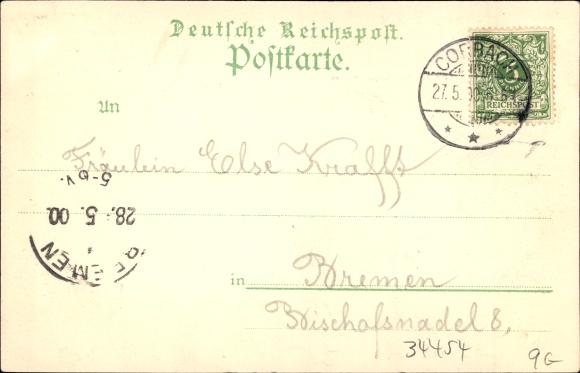 Deutsche Reichspost.
Postkarte.
CORBACH
27.5.00
5
REICHSPOST
An
Fräulein Else Krafft
BREMEN
28. 5. 00
5-6 V.
in Bremen
Bischofsnadel 8,
34454
9G